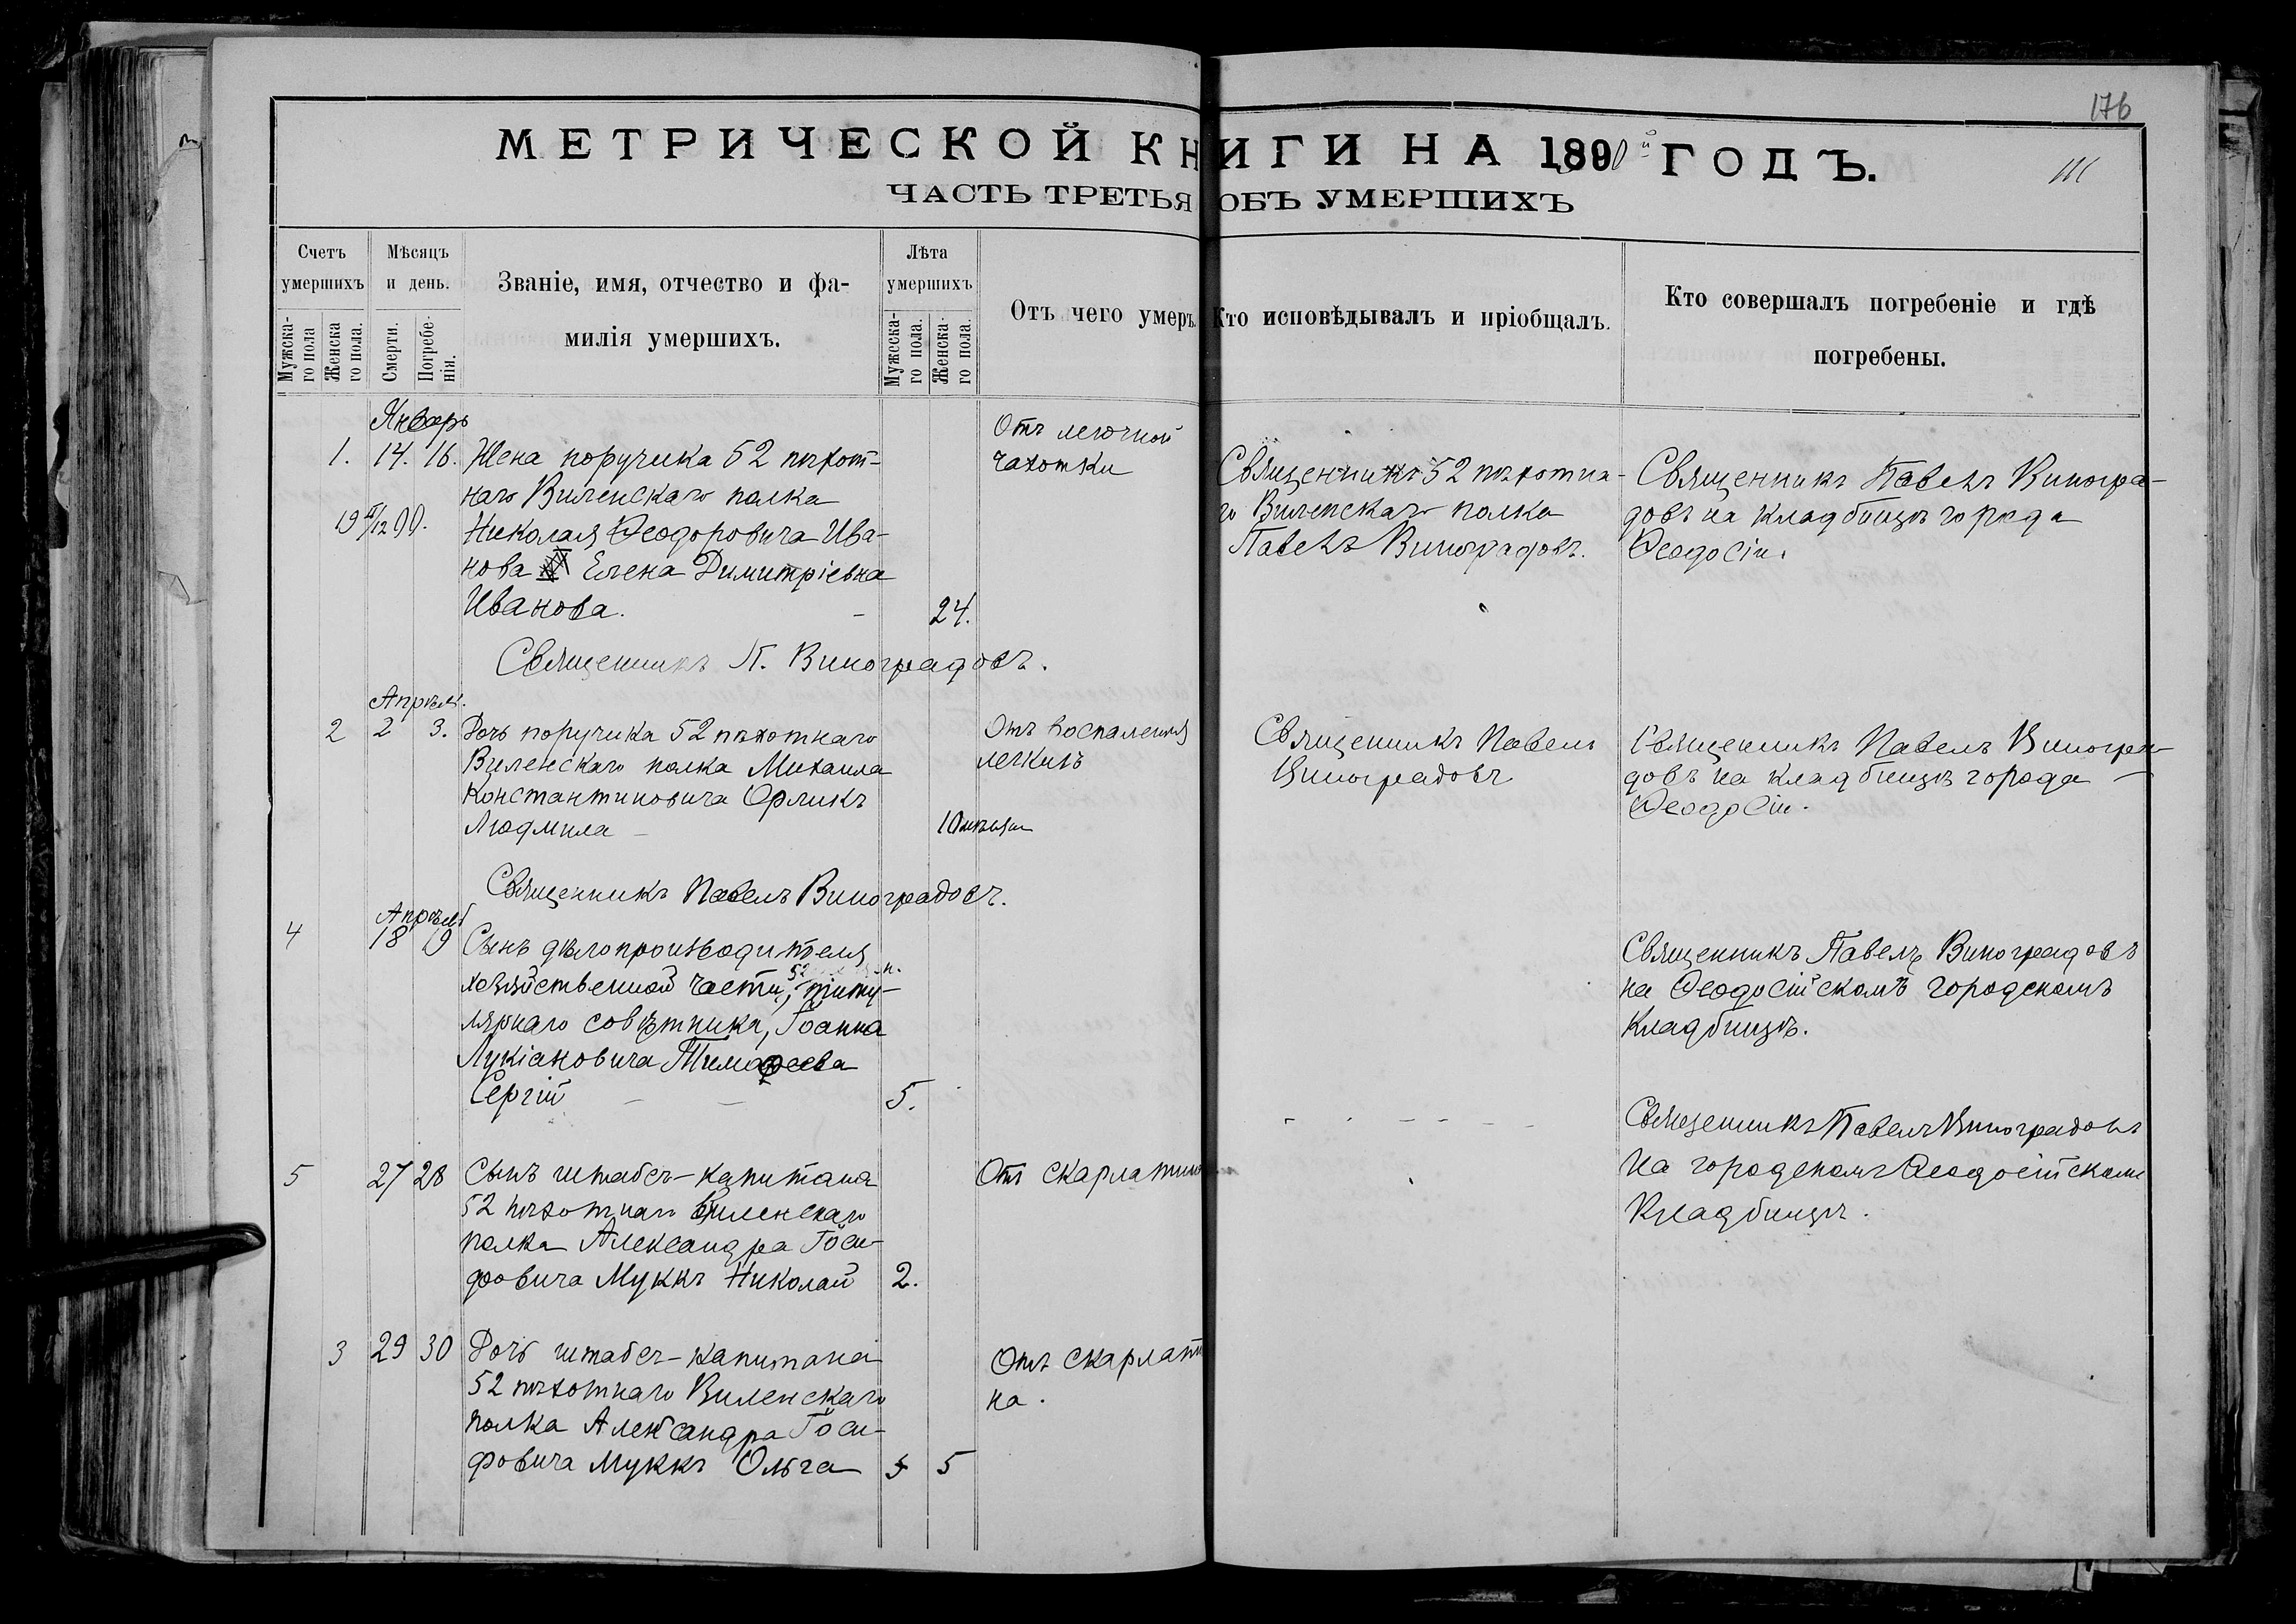 176
МЕТРИЧЕСКОЙ КНИГИ НА 1890й ГОДЪ.
111
ЧАСТЬ ТРЕТЬЯ ОБЪ УМЕРШИХЪ
Счетъ умершихъ
Мужскаго пола
Женскаго пола.
Мѣсяцъ и день.
Смерти.
Погребенія.
Званіе, имя, отчество и фамилія умершихъ.
Лѣта умершихъ
Мужескаго пола.
Женскаго пола.
Отъ чего умеръ.
Кто исповѣдывалъ и пріобщалъ.
Кто совершалъ погребеніе и гдѣ
погребены.
Январь
1. 14. 16. Жена поручика 52 пѣхот-
наго Виленскаго полка
Николая Ѳеодоровича Ива-
нова Елена Димитріевна
Иванова. 24.
Отъ легочной
чахотки
Священникъ 52 пѣхотна-
го Виленскаго полка
Павелъ Виноградовъ.
Священникъ Павелъ Виногра-
довъ на кладбищѣ города
Ѳеодосіи.
Священникъ П. Виноградовъ.
Апрѣль.
2 2 3. Дочь поручика 52 пѣхотнаго
Виленскаго полка Михаила
Константиновича Орликъ
Людмила 10 мѣсяц
Отъ воспаленія
легкихъ
Священникъ Павелъ
Виноградовъ
Священникъ Павелъ Виногра-
довъ на кладбищѣ города
Ѳеодосіи.
Священникъ Павелъ Виноградовъ.
Апрѣль
4 18 19 Сынъ дѣлопроизводителя
хозяйственной части, титу-
лярнаго совѣтника, Іоанна
Лукіановича Тимоѳеева
Сергій 5.
Священникъ Павелъ Виноградовъ
на Ѳеодосійскомъ городскомъ
кладбищѣ.
5 27 28 Сынъ штабсъ-капитана
52 пѣхотнаго Виленскаго
полка Александра Іоси-
фовича Муккъ Николай 2.
Отъ скарлатины
Священникъ Павелъ Виноградовъ
на городскомъ Ѳеодосійскомъ
кладбищѣ.
3 29 30 Дочь штабсъ-капитана
52 пѣхотнаго Виленскаго
полка Александра Іоси-
фовича Муккъ Ольга 5 5
Отъ скарлати
на.